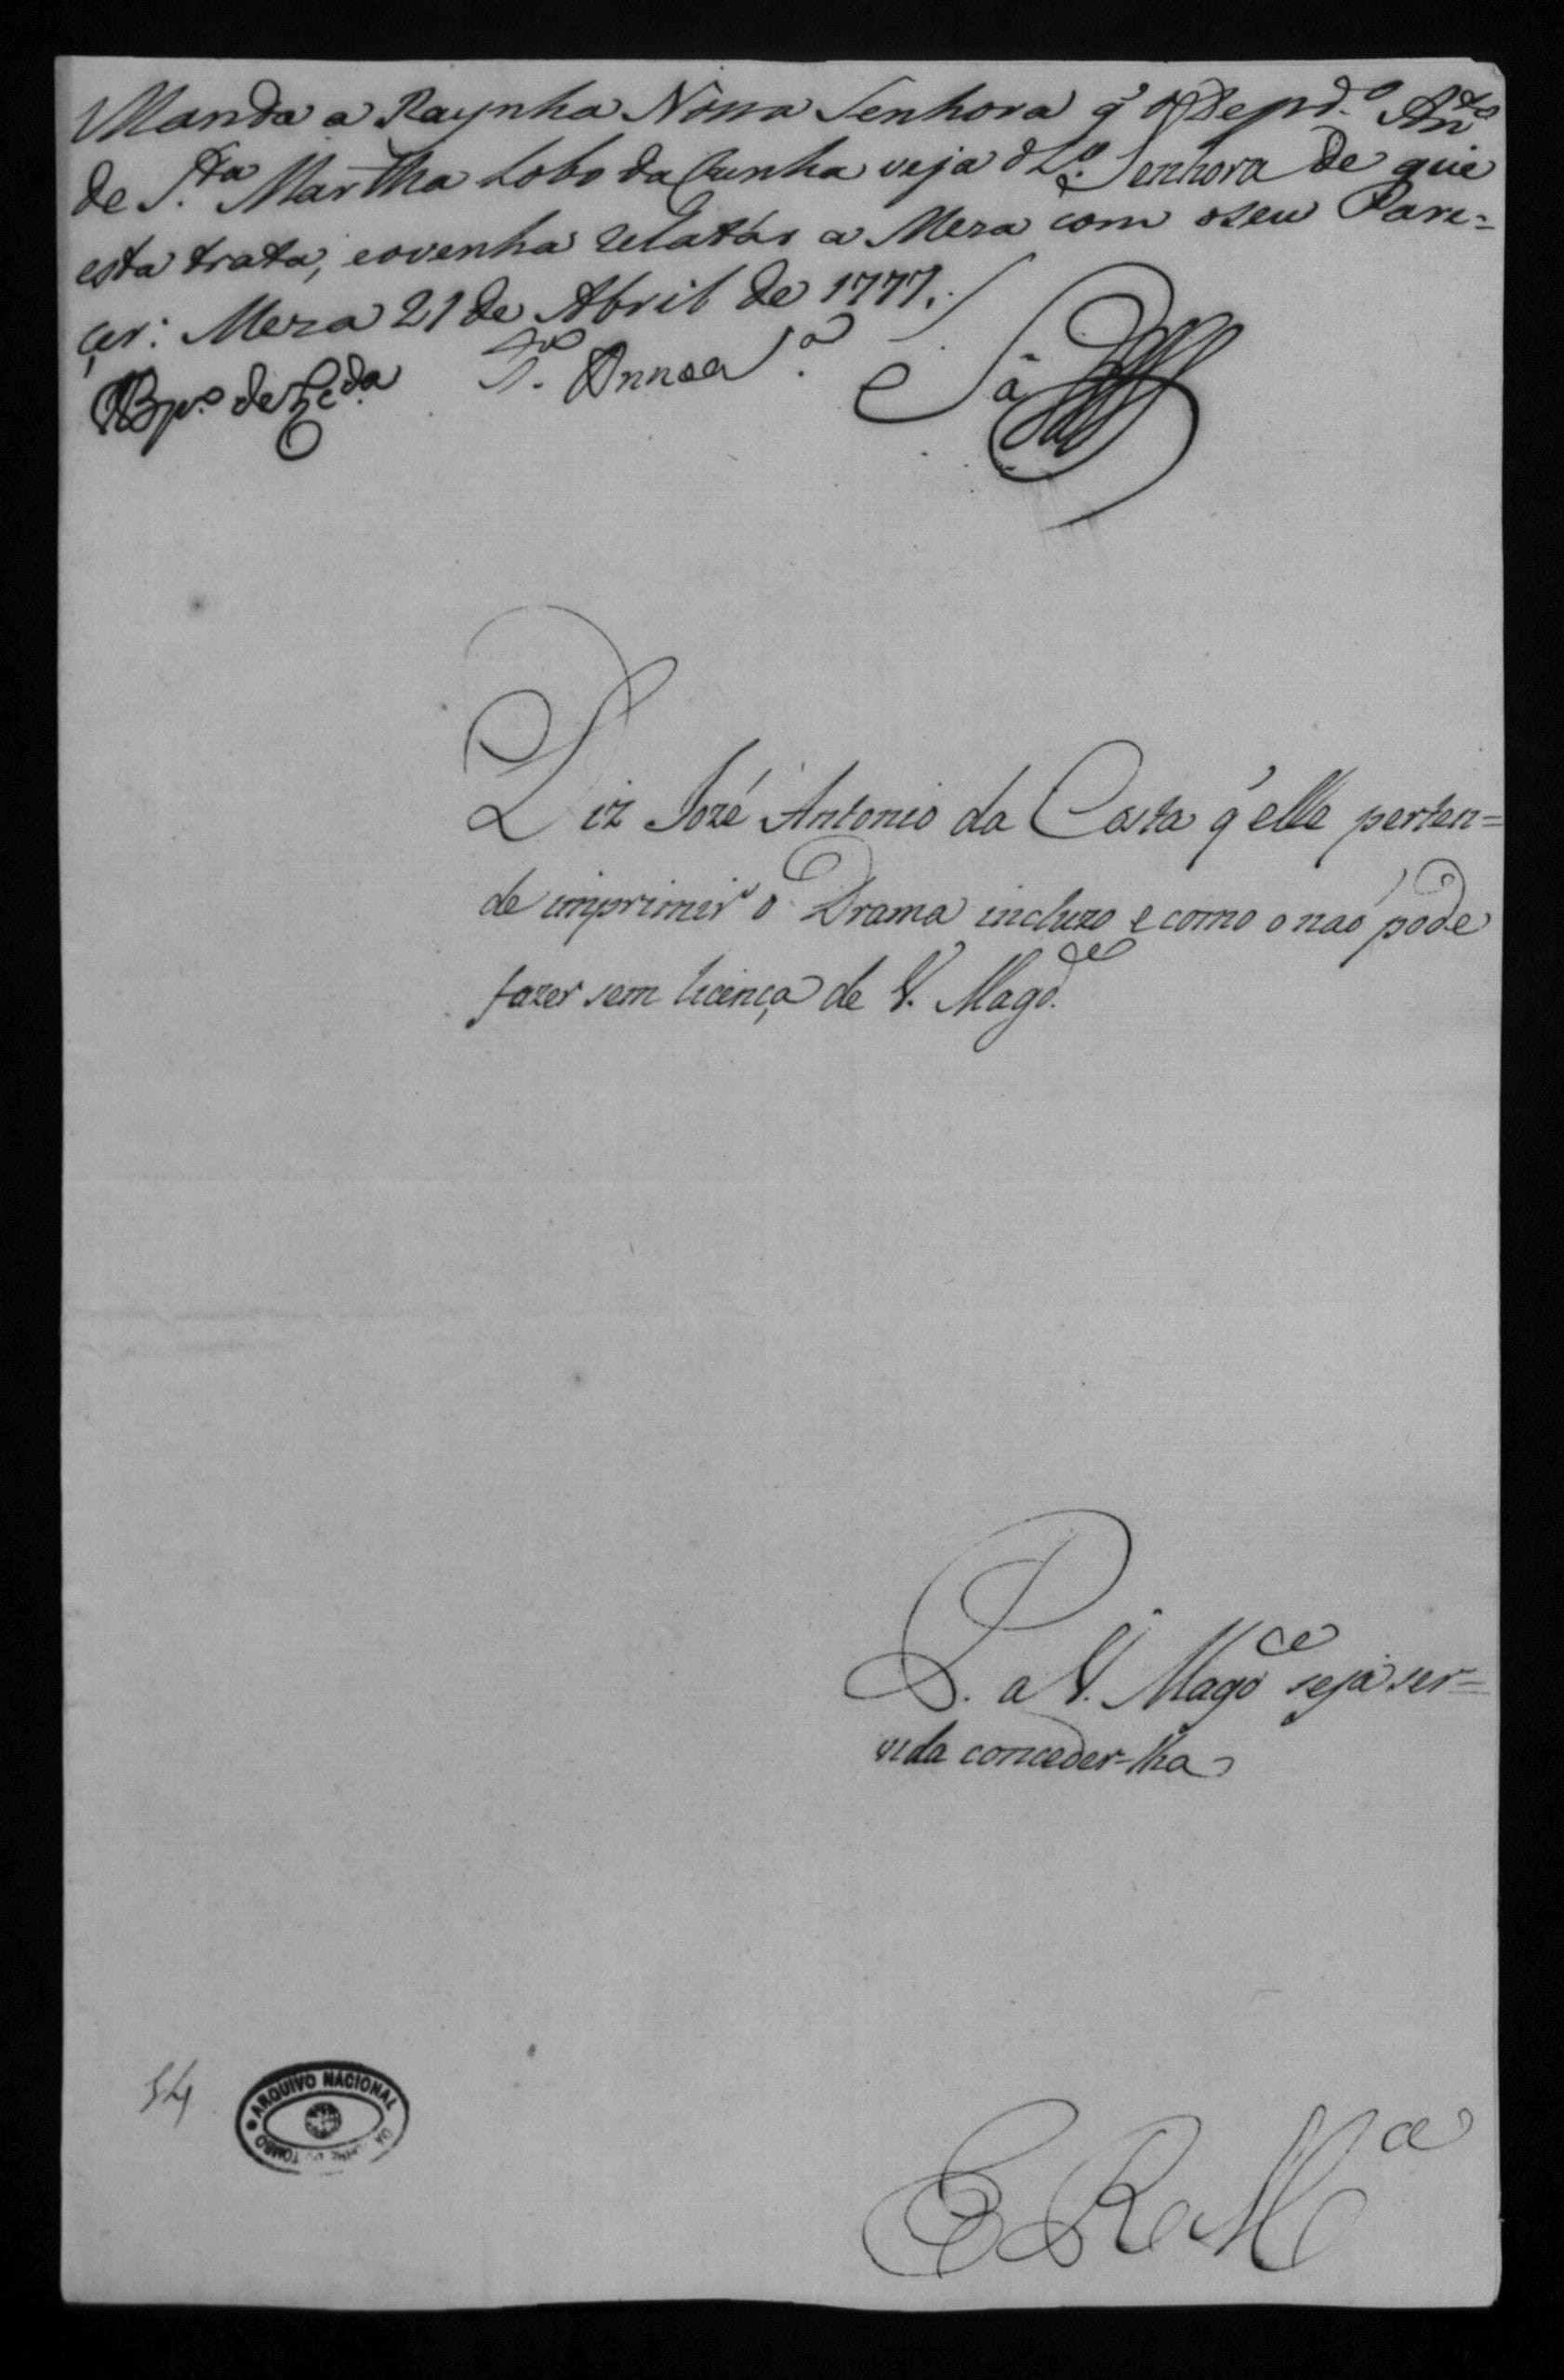 Manda a Raynha Nossa Senhora q̃ o Dep.do An.to
de S.ta Martha Lobo da Cunha veja o L.o Senhora de que
esta trata, e o venha relatár a Meza com o seu Pare=
çer: Meza 21 de Abril de 1777.
Bp.o de
Diz Jozé Antonio da Costa q̃ elle perten=
de imprimir o Drama incluzo e como o naõ pode
fazer sem licença de V. Mag.de
P. a V. Mag.de seja ser=
vida conceder-lha
E R M.ce
54
ARQUIVO NACIONAL
DA TORRE DO TOMBO